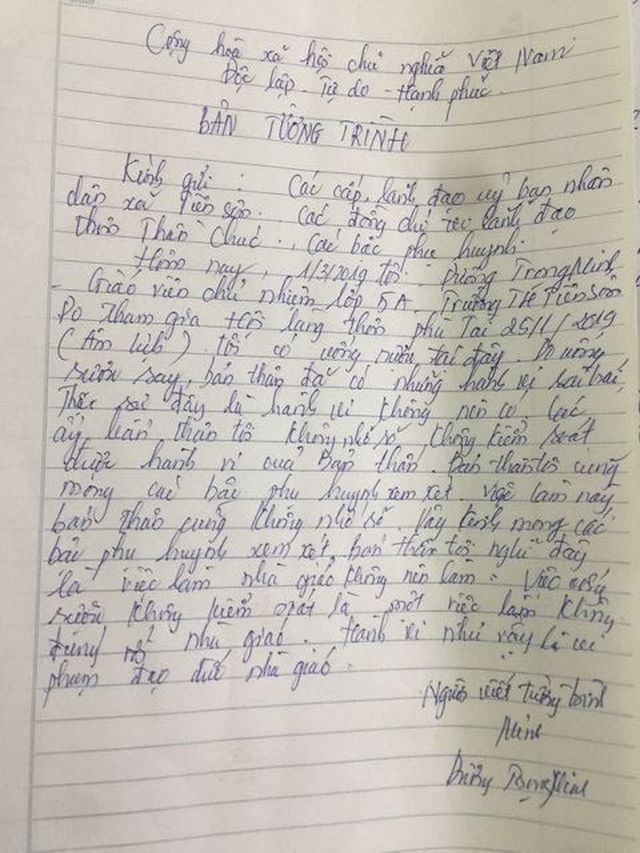 Cộng hoà xã hội chủ nghĩa Việt Nam
Độc lập - Tự do - Hạnh phúc.
BẢN TƯỜNG TRÌNH
Kính gửi : Các cấp, lãnh đạo uỷ ban nhân
dân xã Tiên Sơn. Các đồng chí lãnh đạo
thôn Thần Chúc., Các bác phụ huynh.
Hôm nay, 1/3/2019 tôi : Dương Trọng Minh
- Giáo viên chủ nhiệm lớp 5A. Trường TH Tiên Sơn
Do tham gia hội làng thôn phù Tài 25/1/2019
(Âm lịch) tôi có uống rượu tại đây. Do uống
rượu say, bản thân đã có những hành vi sai trái,
Thực sự đây là hành vi không nên có, lúc
ấy bản thân tôi không nhớ số, không kiểm soát
được hành vi của Bản thân. Bản thân tôi cũng
mong các bác phụ huynh xem xét. Việc làm này
bản thân cũng không nhớ số. Vậy kính mong các
bác phụ huynh xem xét, bản thân tôi nghĩ đây
là việc làm nhà giáo không nên làm. Việc uống
rượu không kiểm soát là một việc làm không
đúng nhà giáo. Hành vi như vậy là vi
phạm đạo đức nhà giáo.
Người viết tường trình
Minh
Dương Trọng Minh